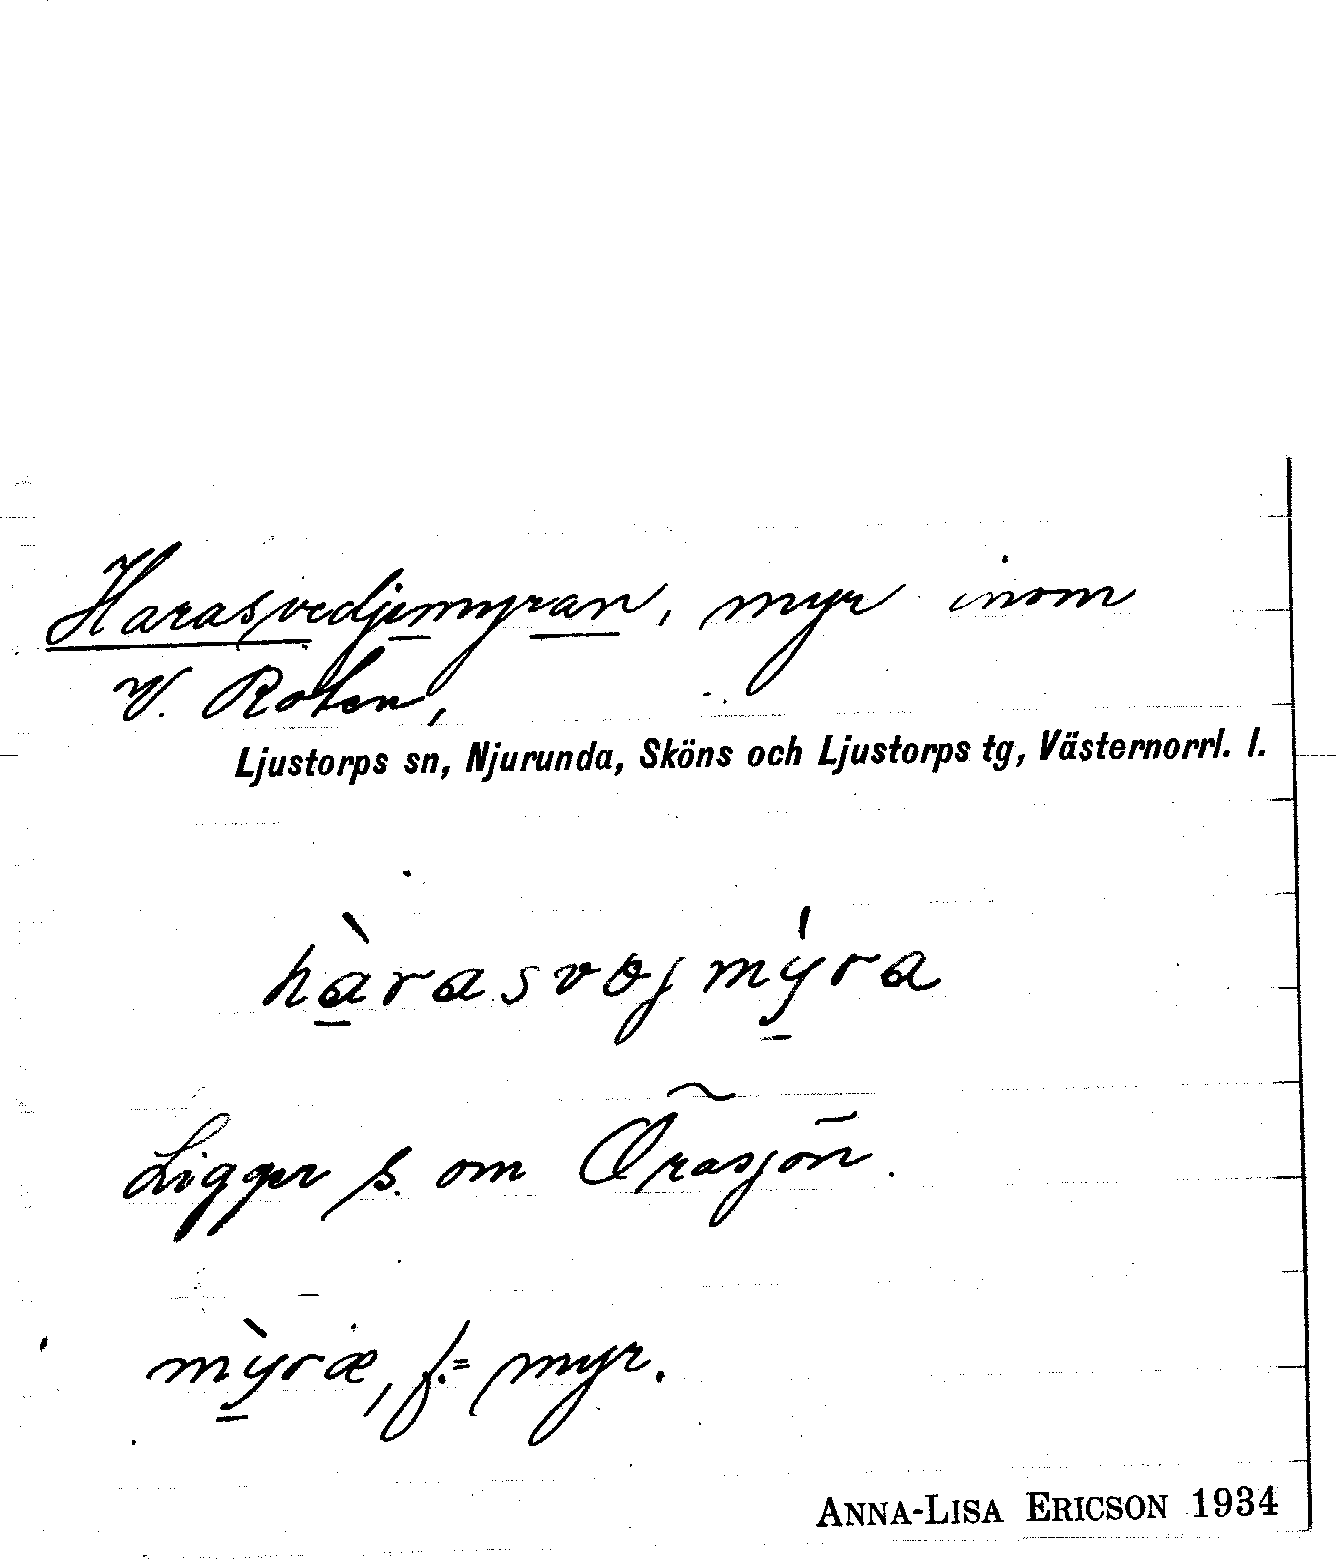 Harasvedjemyran, myr inom
V. Roten,
Ljustorps sn, Njurunda, Sköns och Ljustorps tg, Västernorrl. l.
hàrasvojmýra
Ligger s. om Örasjön.
mỳræ, f. = myr.
ANNA-LISA ERICSON 1934